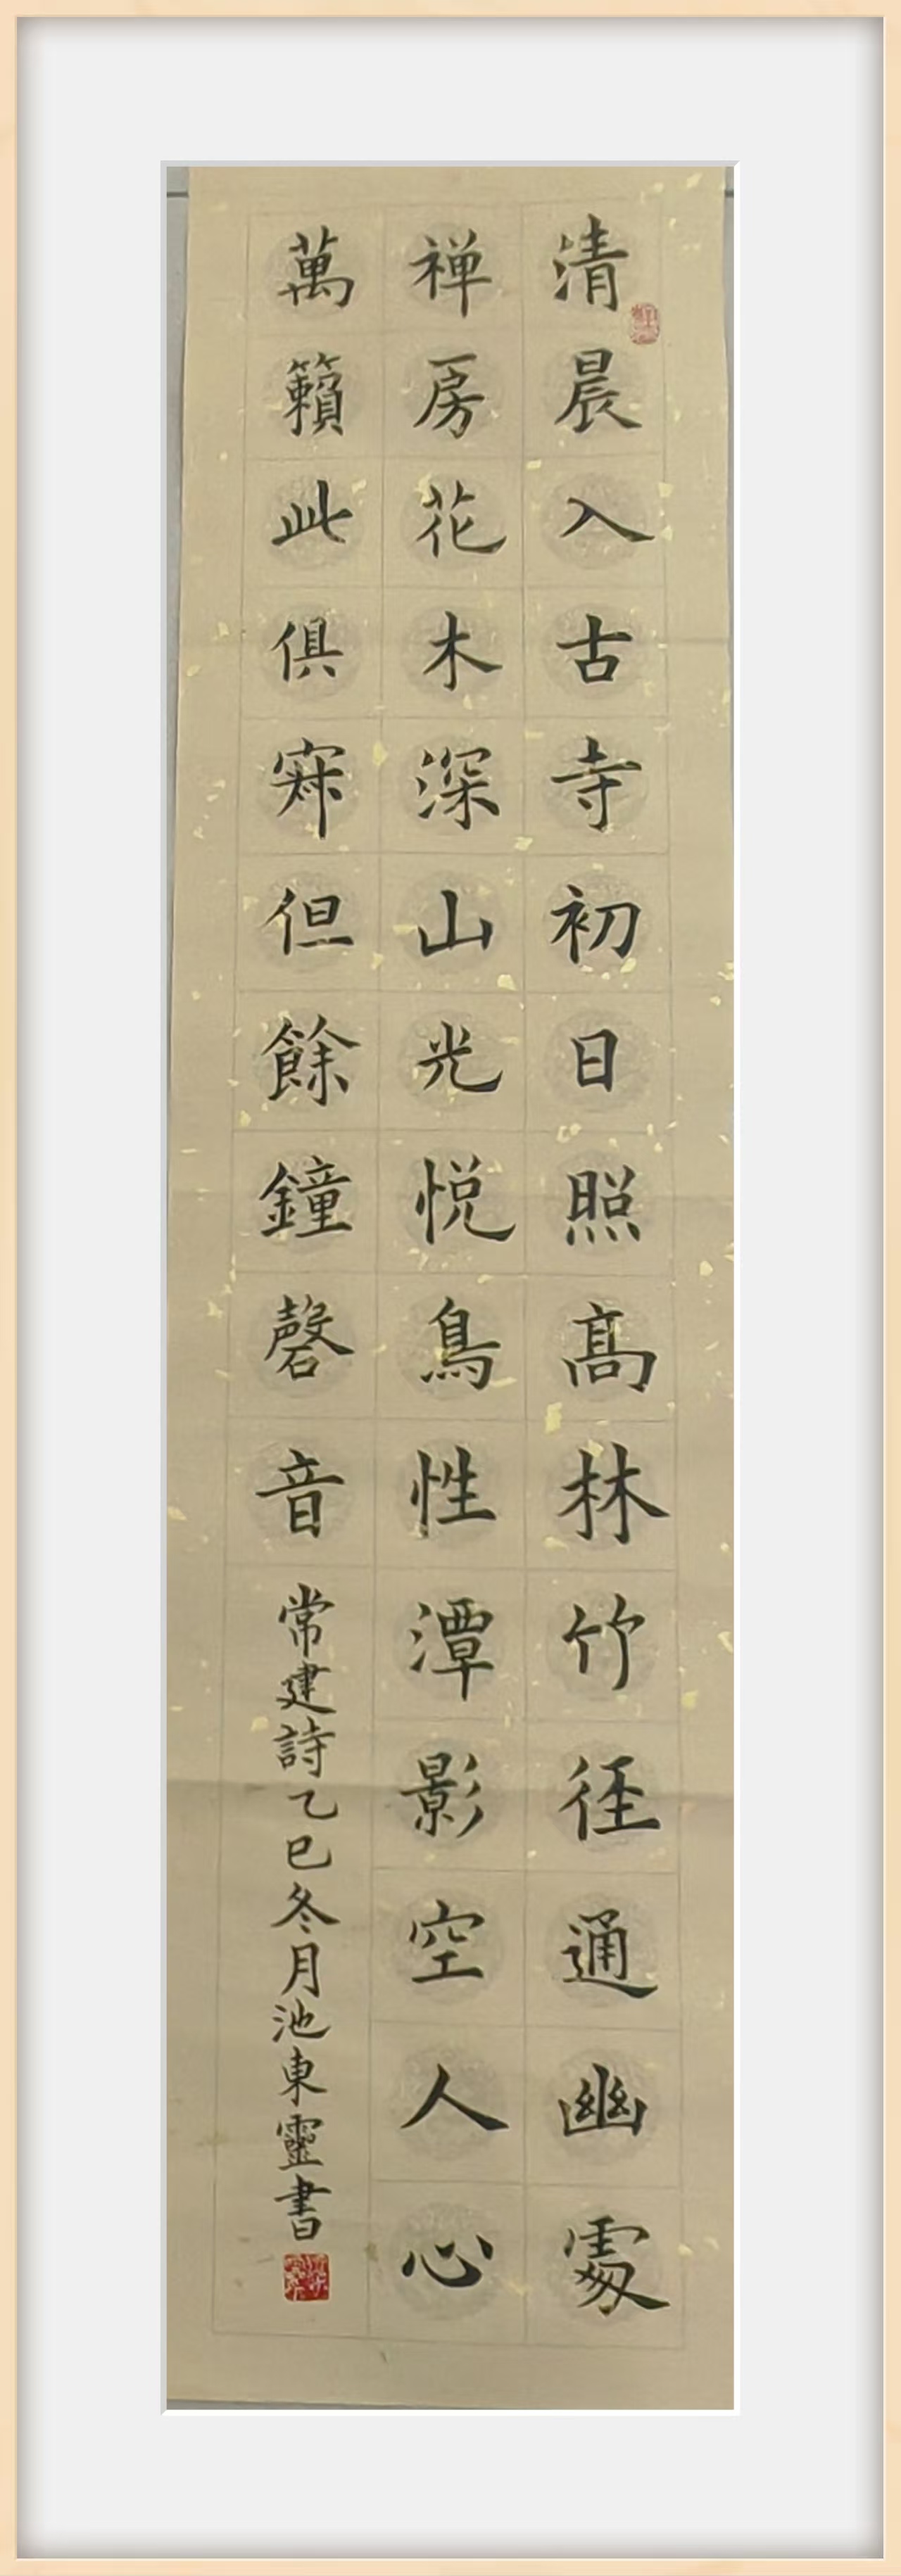 清晨入古寺初日照高林竹径通幽處
禅房花木深山光悦鳥性潭影空人心
萬籟此俱寂但餘鐘磬音常建詩乙巳冬月池東靈書